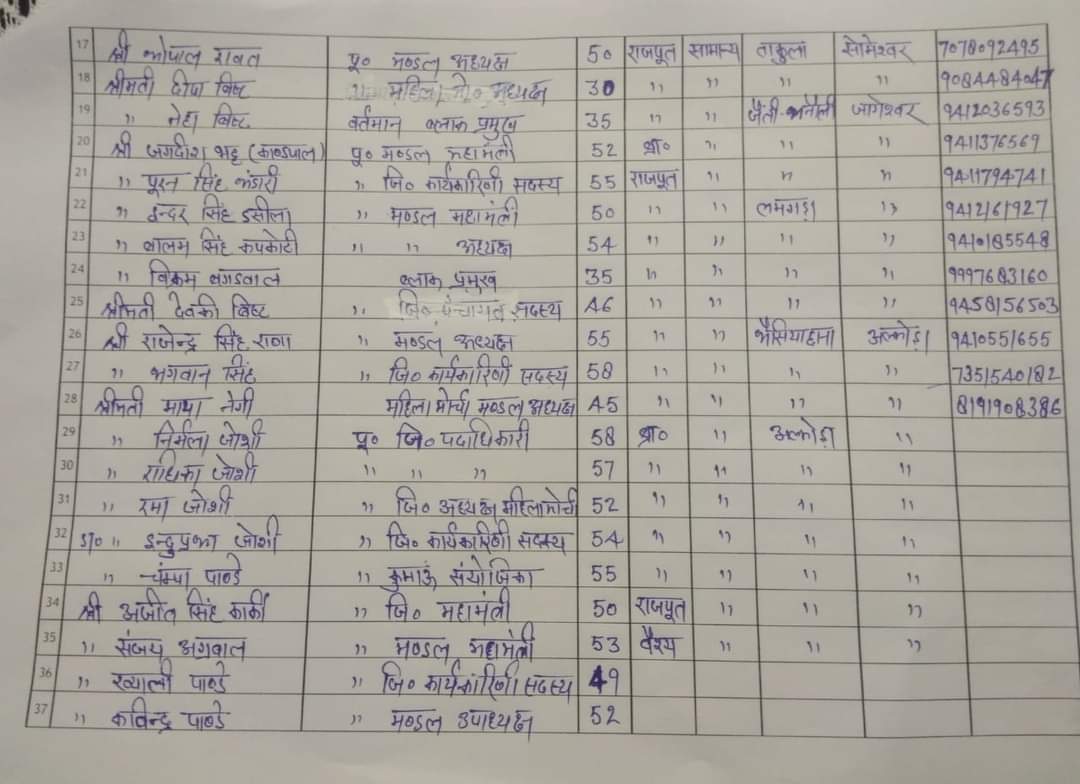 17 श्री गोपाल रावत पू० मण्डल अध्यक्ष 50 राजपूत सामान्य ताकुला सोमेश्वर 7078092495
18 श्रीमती दीपा बिष्ट ,, महिला मो० अध्यक्ष 30 ,, ,, ,, ,, 9084484047
19 ,, नेहा बिष्ट वर्तमान ब्लाक प्रमुख 35 ,, ,, जैंती-भनोली जागेश्वर 9412036593
20 श्री जगदीश भट्ट (काण्डपाल) पू० मण्डल महामंत्री 52 ब्रा० ,, ,, ,, 9411376569
21 ,, पूरन सिंह भंडारी ,, जि० कार्यकारिणी सदस्य 55 राजपूत ,, ,, ,, 9411794741
22 ,, इन्दर सिंह डसीला ,, मण्डल महामंत्री 50 ,, ,, लमगड़ा ,, 9412161927
23 ,, बालम सिंह कपकोटी ,, ,, अध्यक्ष 54 ,, ,, ,, ,, 9410185548
24 ,, विक्रम बगडवाल ब्लाक प्रमुख 35 ,, ,, ,, ,, 9997683160
25 श्रीमती देवकी बिष्ट ,, जि० पंचायत सदस्य 46 ,, ,, ,, ,, 9458156503
26 श्री राजेन्द्र सिंह राणा ,, मण्डल अध्यक्ष 55 ,, ,, भैसियाछाना अल्मोड़ा 9410551655
27 ,, भगवान सिंह ,, जि० कार्यकारिणी सदस्य 58 ,, ,, ,, ,, 7351540182
28 श्रीमती माया नेगी महिला मोर्चा मण्डल अध्यक्ष 45 ,, ,, ,, ,, 8191908386
29 ,, निर्मला जोशी पू० जि० पदाधिकारी 58 ब्रा० ,, अल्मोड़ा ,,
30 ,, राधिका जोशी ,, ,, ,, 57 ,, ,, ,, ,,
31 ,, रमा जोशी ,, जि० अध्यक्ष महिला मोर्चा 52 ,, ,, ,, ,,
32 डा० ,, इन्दुप्रभा जोशी ,, जि० कार्यकारिणी सदस्य 54 ,, ,, ,, ,,
33 ,, चंम्पा पाण्डे ,, कुमाऊं संयोजिका 55 ,, ,, ,, ,,
34 श्री अजीत सिंह कार्की ,, जि० महामंत्री 50 राजपूत ,, ,, ,,
35 ,, संजय अग्रवाल ,, मण्डल महामंत्री 53 वैश्य ,, ,, ,,
36 ,, ख्याली पाण्डे ,, जि० कार्यकारिणी सदस्य 49
37 ,, कविन्द्र पाण्डे ,, मण्डल उपाध्यक्ष 52